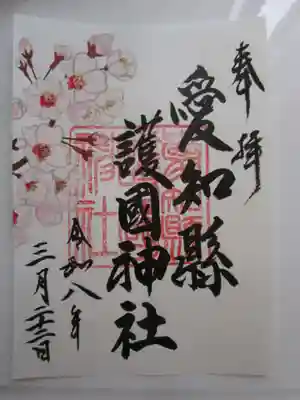 奉拝
愛知縣
護國神社
令和八年
三月二十二日